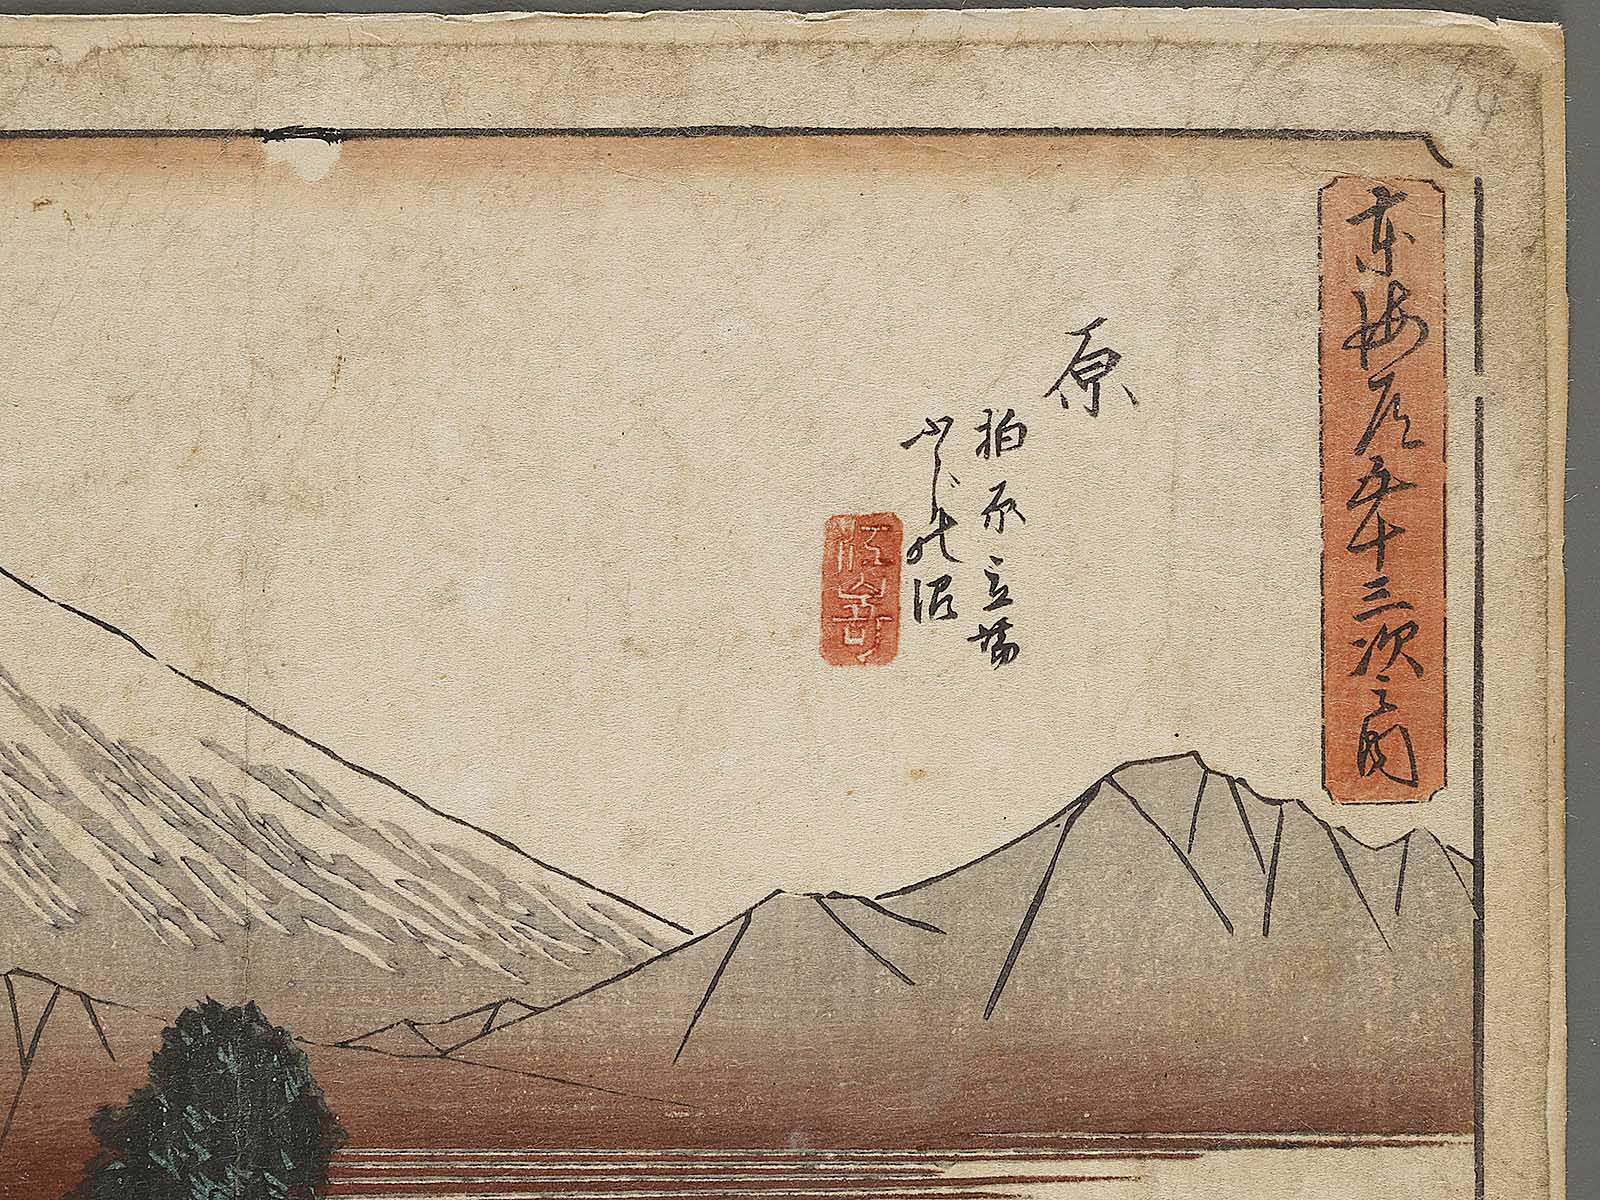 東海道五十三次之図
原
柏原立場
ふじの沼